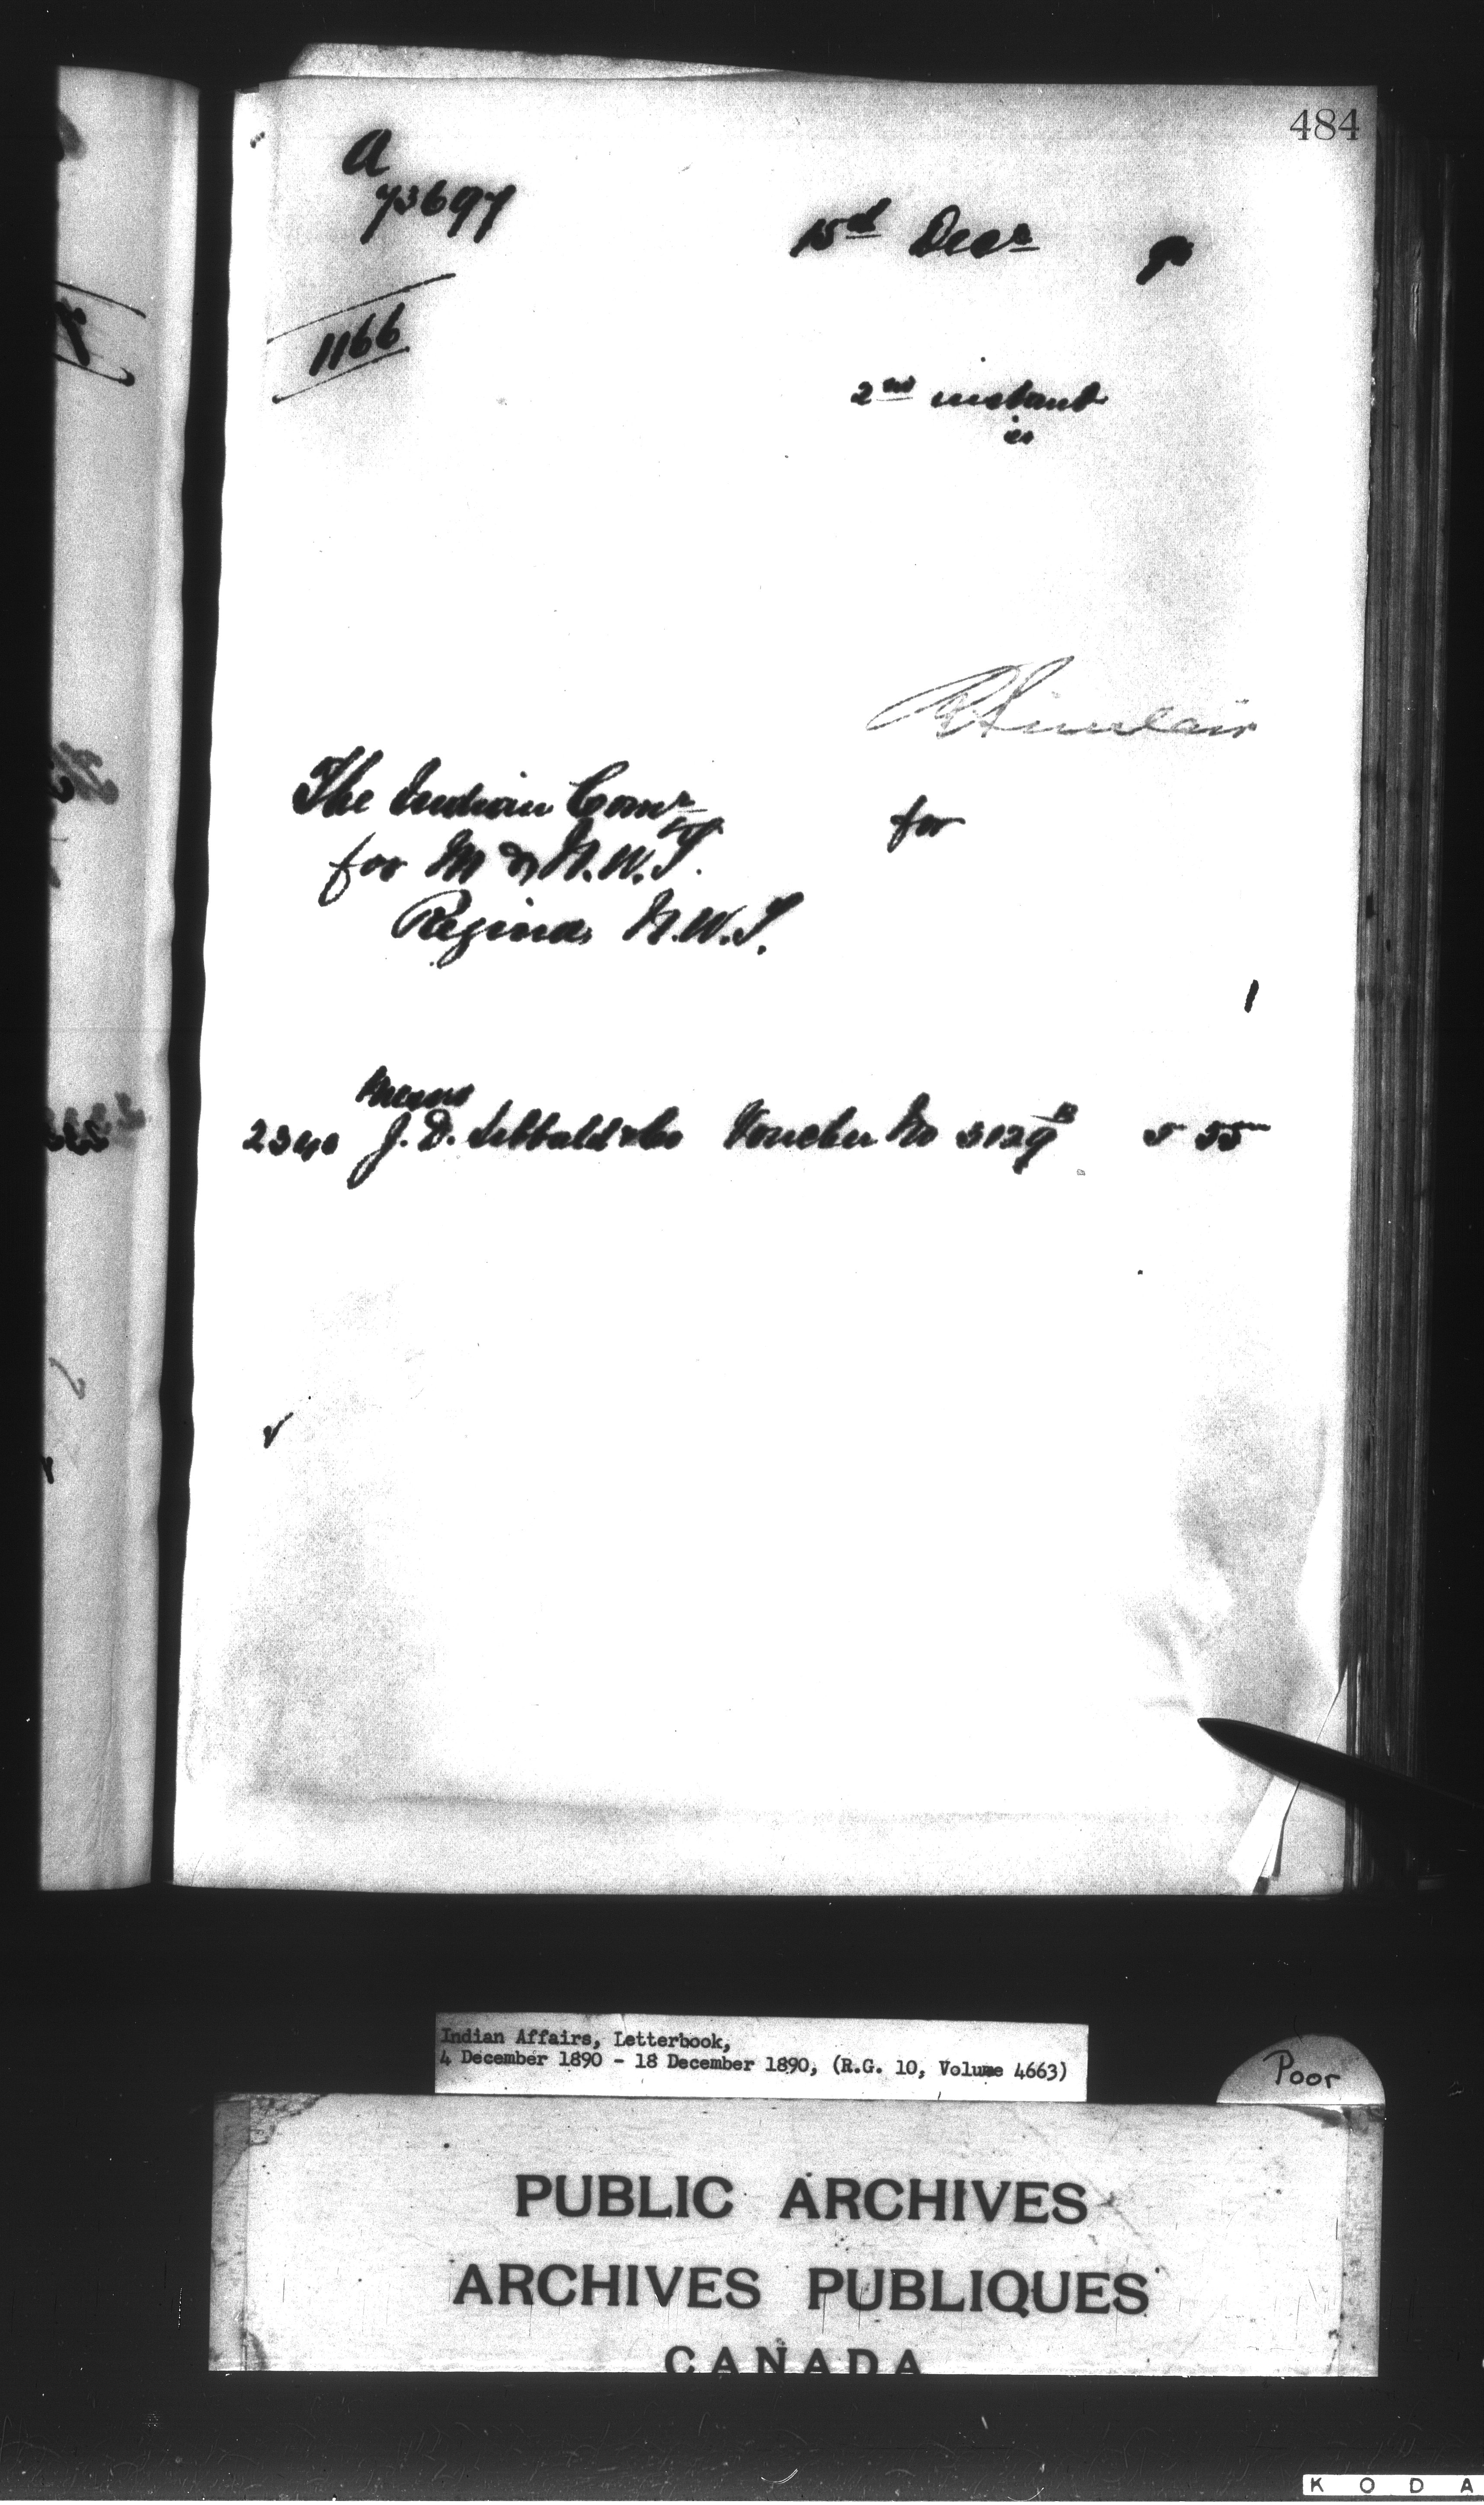 484
A
73697
15th Decr 90
1166
2nd instant
is
R Sinclair
The Indian Comr
for
for M & N.W.T.
Regina, N.W.T.
1
Messrs
2340 J. D. Sibbald & Co Voucher No 3129 B 5 55
Indian Affairs, Letterbook,
4 December 1890 - 18 December 1890, (R.G. 10, Volume 4663)
Poor
PUBLIC ARCHIVES
ARCHIVES PUBLIQUES
CANADA
K O D A